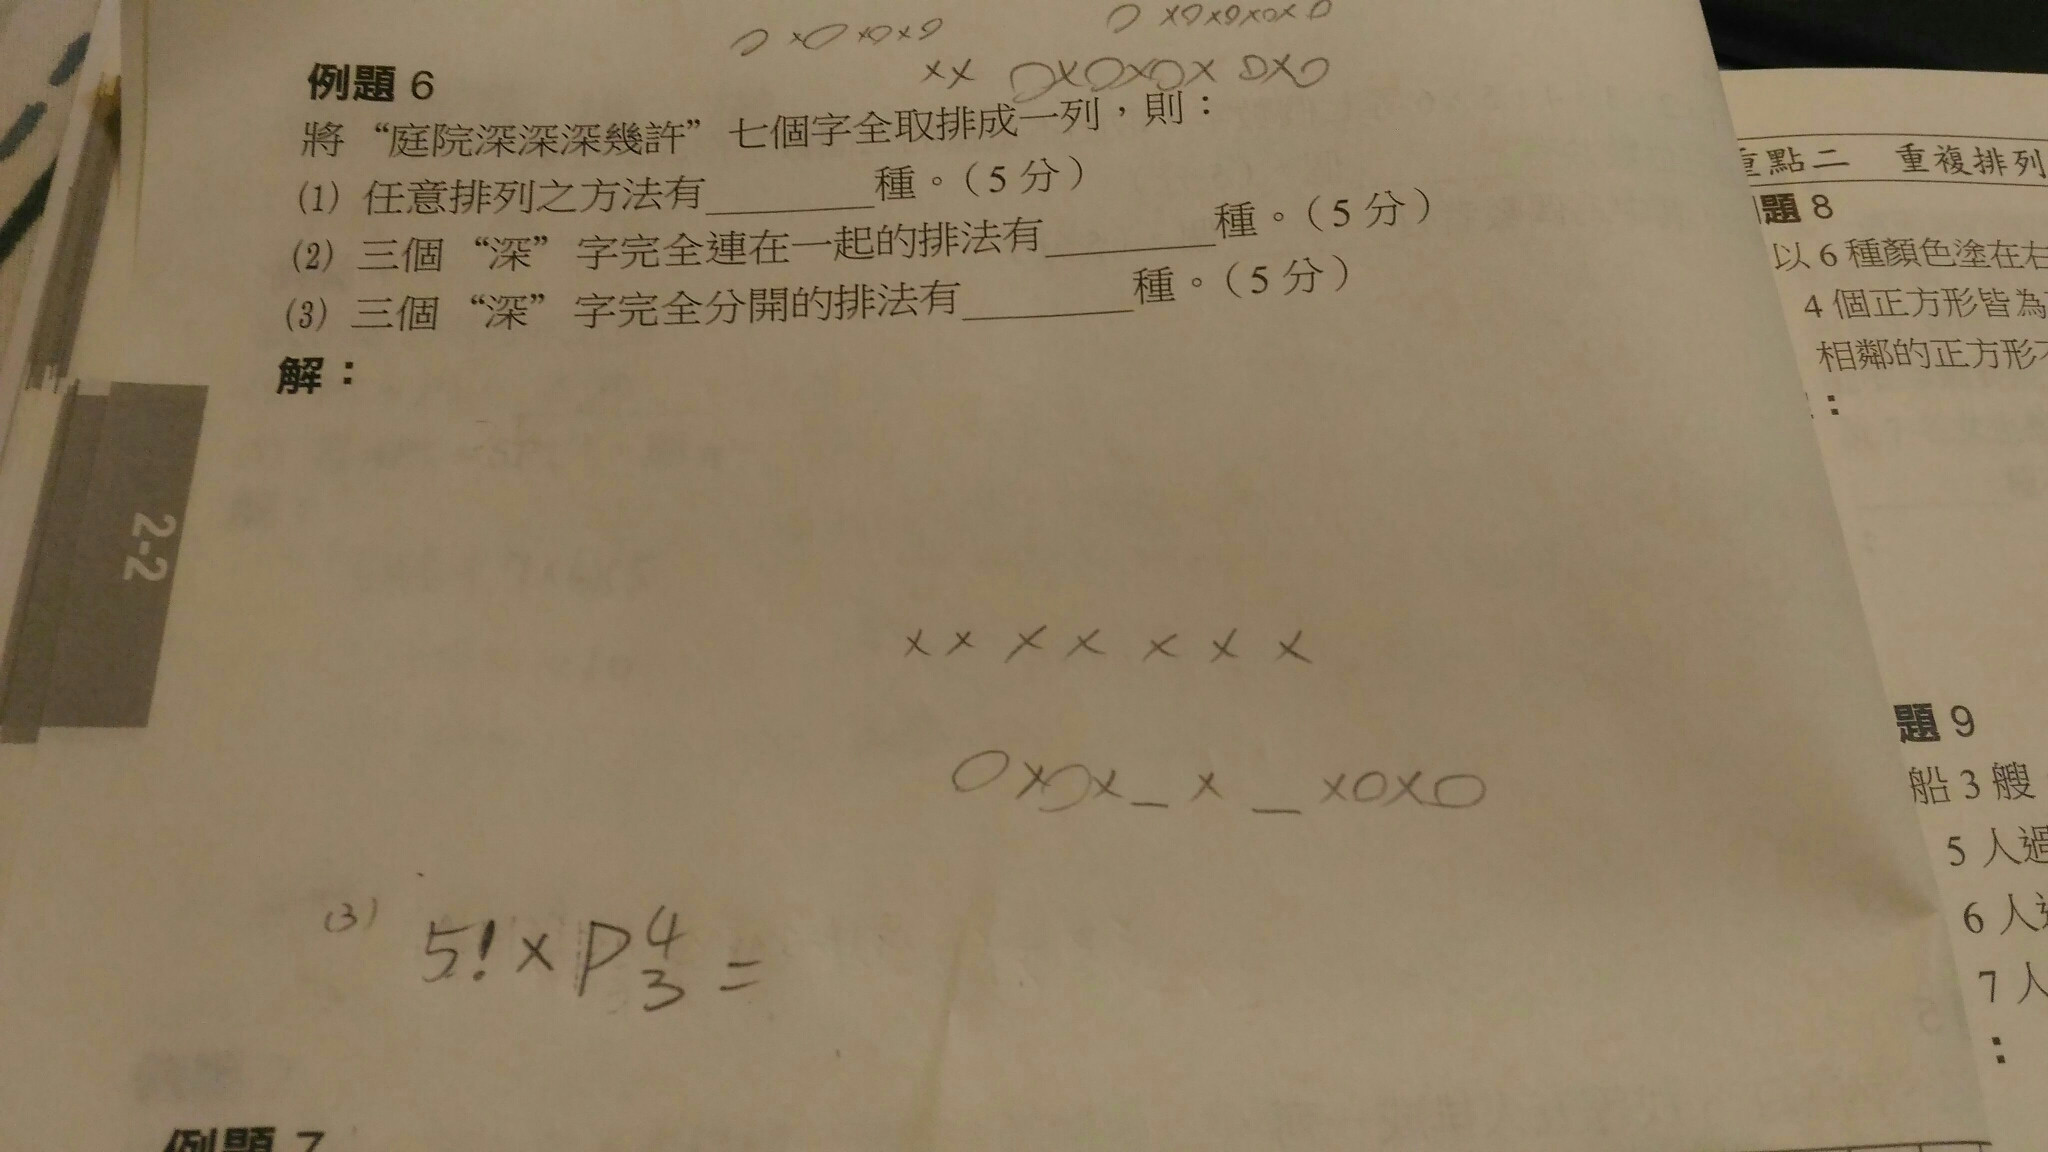 O × O × O × O
O × O × O × O × O
×× O×O×O× O×O
例題 6
將“庭院深深深幾許”七個字全取排成一列，則：
(1) 任意排列之方法有______種。（5 分）
(2) 三個“深”字完全連在一起的排法有______種。（5 分）
(3) 三個“深”字完全分開的排法有______種。（5 分）
解：
2-2
× × × × × × ×
O×O×_×_×O×O
(3) 5! × P⁴₃ =
例題 7
重點二 重複排列
題 8
以 6 種顏色塗在右
4 個正方形皆為
相鄰的正方形不
：
題 9
船 3 艘
5 人過
6 人過
7 人
：